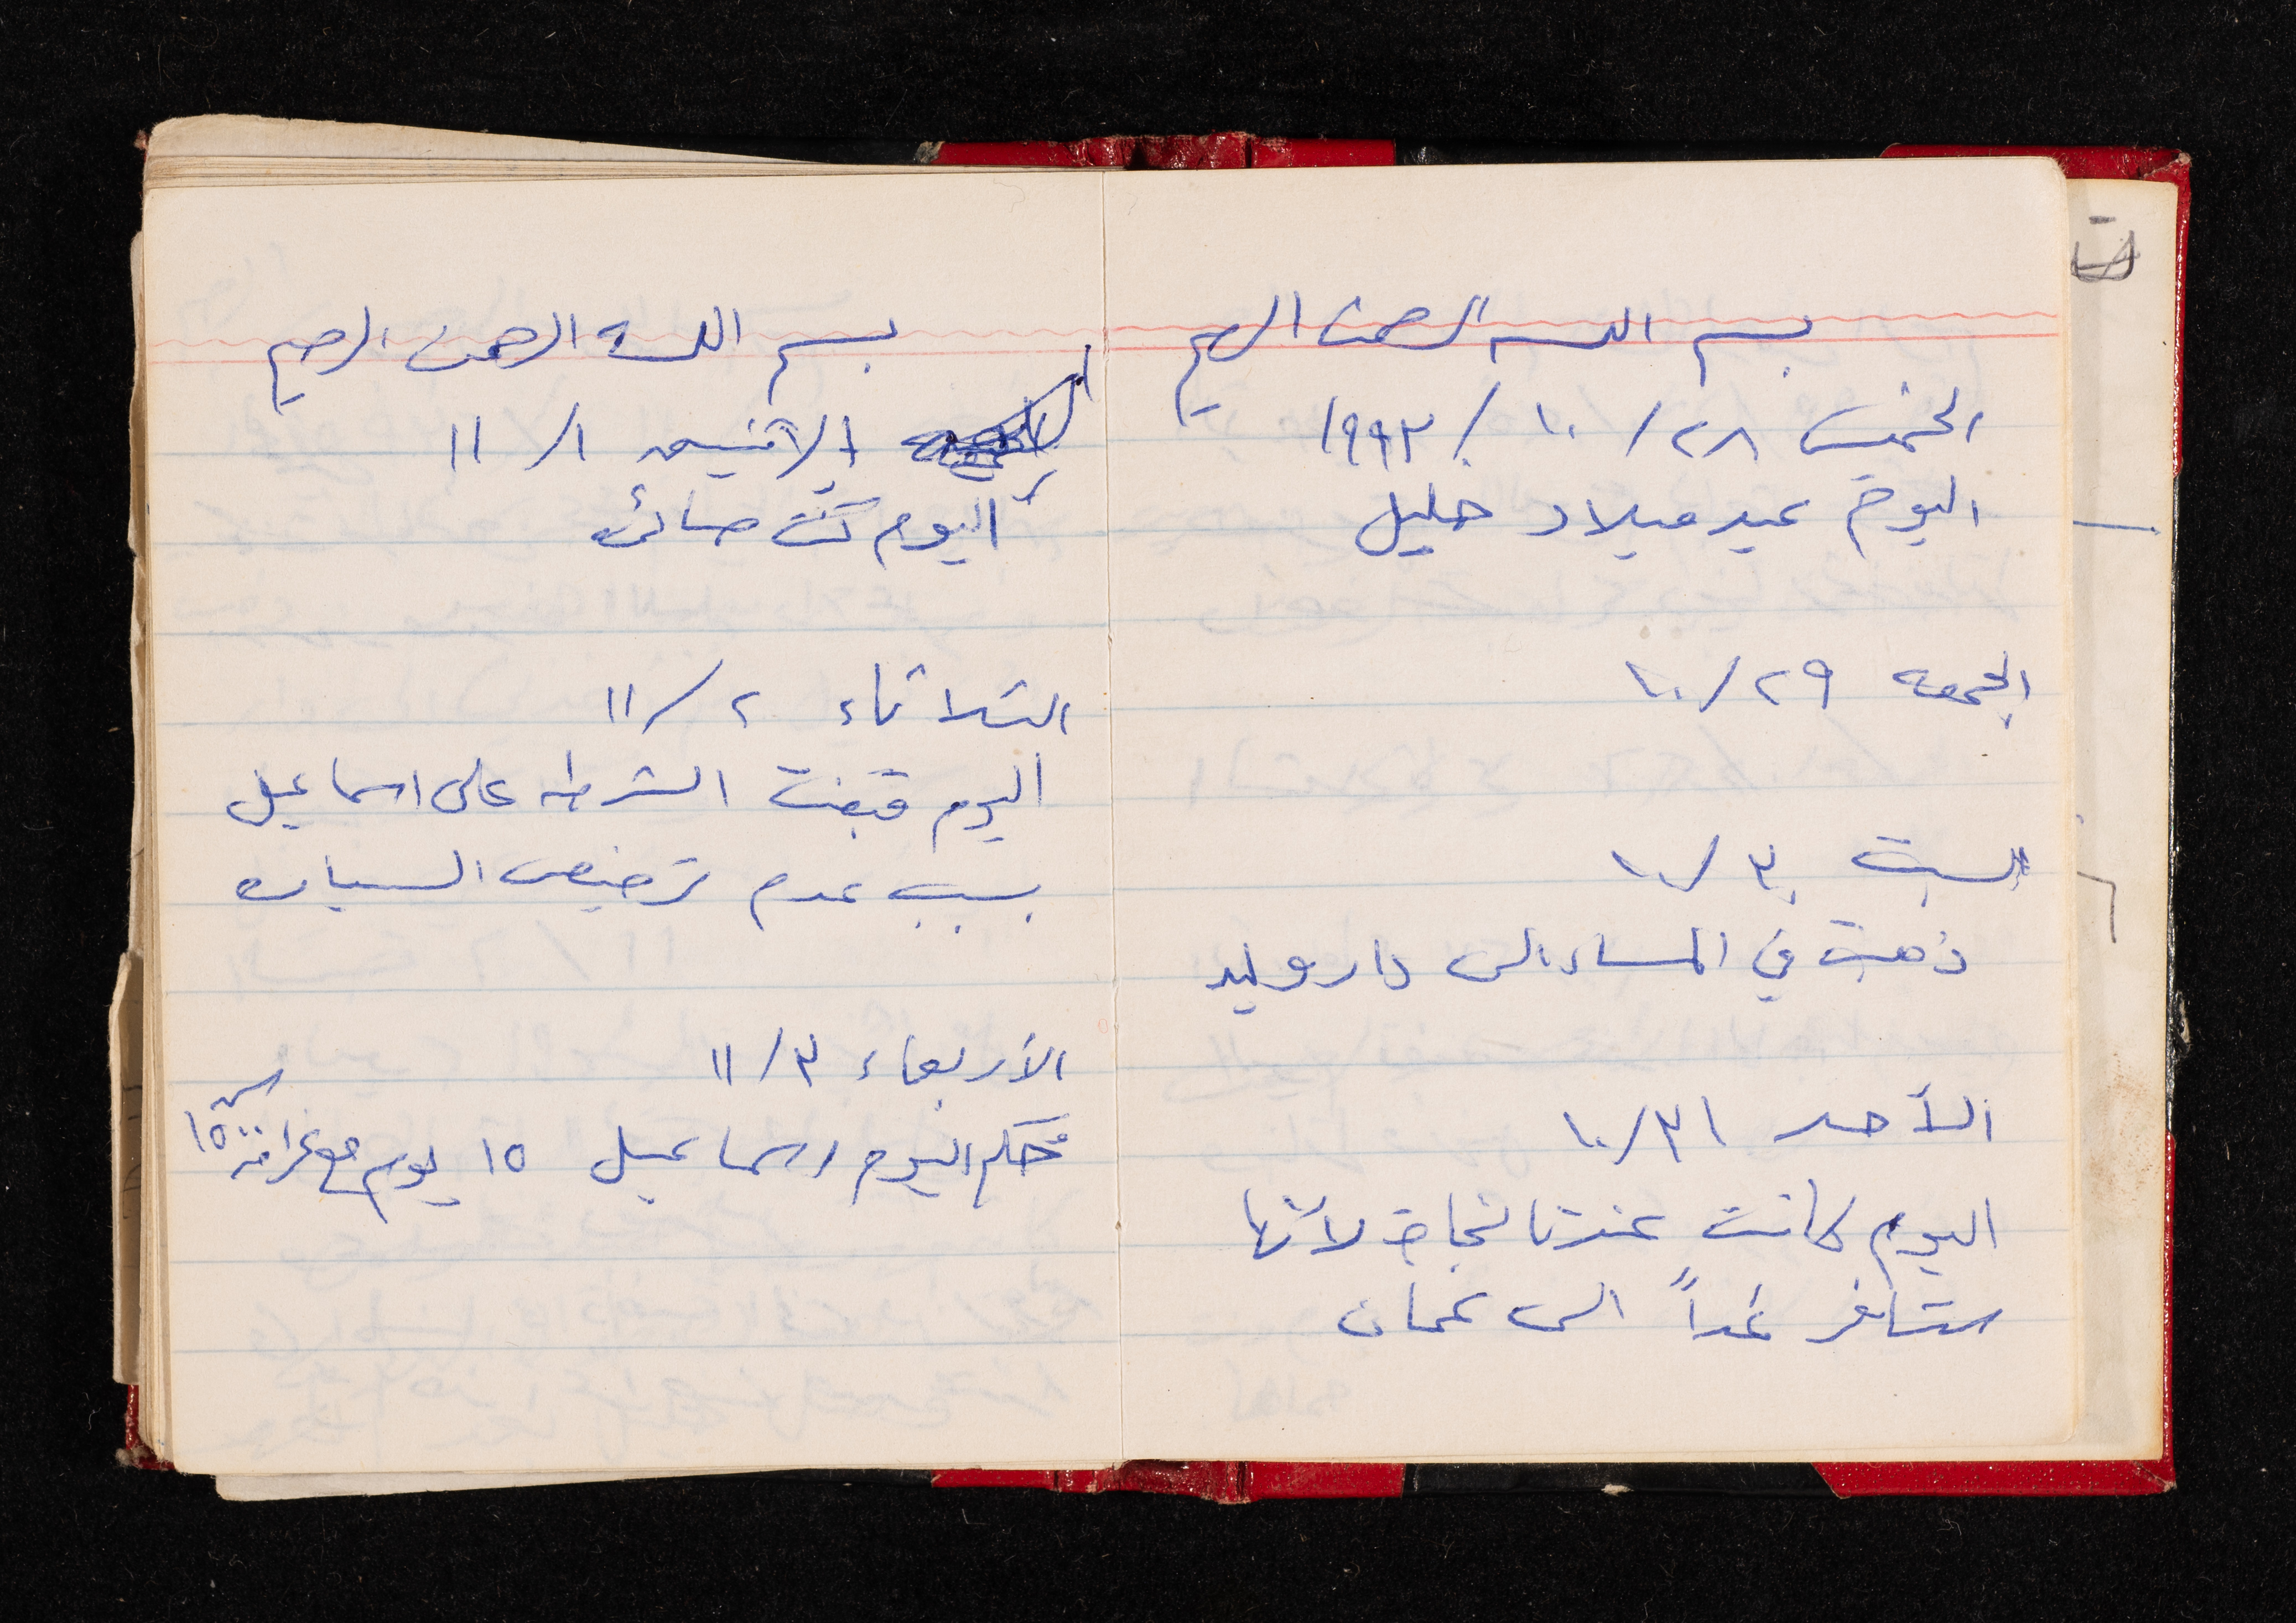 بسم الله الرحمن الرحيم
الخميس ٢٨/ ١٠ /١٩٩٣
اليوم عيد ميلاد خليل
الجمعه ٢٩/ ١٠
السبت ٣٠/ ١٠
ذهبت في المساء الى دار وليد
الأحد ٣١/ ١٠
اليوم كانت عندنا نجاح لأنها
ستسافر غداً الى عمان
بسم الله الرحمن الرحيم
الاثنين ١/ ١١
اليوم كنت صائم
الثلاثاء ٢/ ١١
اليوم قبضت الشرطه على اسماعيل
بسبب عدم ترخيص السياره
الأربعاء ٣/ ١١
حكم اليوم اسماعيل ١٥ يوم مع غرامة ١٥٠٠